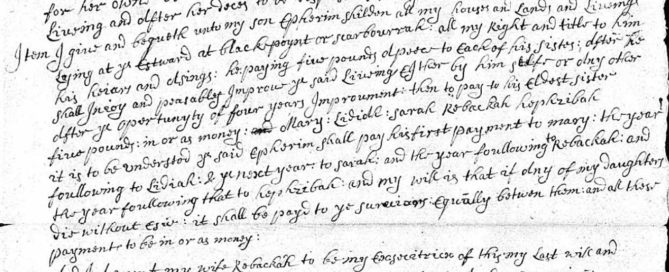 for her owne
Liveing and after her deces to be
Item I give and bequeth unto my son Epherim shilden all my houses an Lands and Liveings
Lying at ye Estward at blackpoynt or scarbourrah: all my Right and title to him
his heiars and asings: he paying five pounds a peece to Each of his sistes: after he
shall Injoy and peatably Improve ye said Liveing Ether by him selfe or any other
after ye opertunyty of four years Improvment: then to pay to his Eldest sister
five pounds: in or as money: Mary: Lidiah: sarah Rebackah hephzibah
it is to be understod ye said Epherim shall pay his first payment to mary: the year
foullowing to Lidiah: & ye next year to sarah: and the year foullowing to Rebackah: and
the year foullowing that to hephzibah: and my will is that if any of my daughters
die without Esue: it shall be payd to ye survivars Equally betwen them: and all these
payments to be in or as money:
my wife Rebackah to be my Execsecitrix of this my Last will and